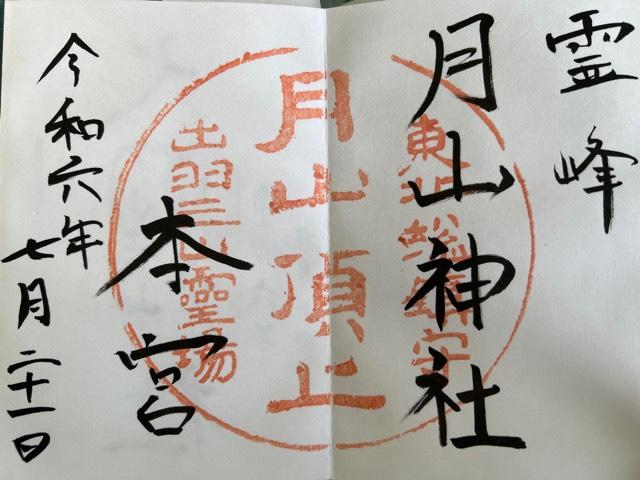 霊峰
月山神社
本宮
令和六年
七月二十一日
東北総鎮守
月山頂上
出羽三山霊場